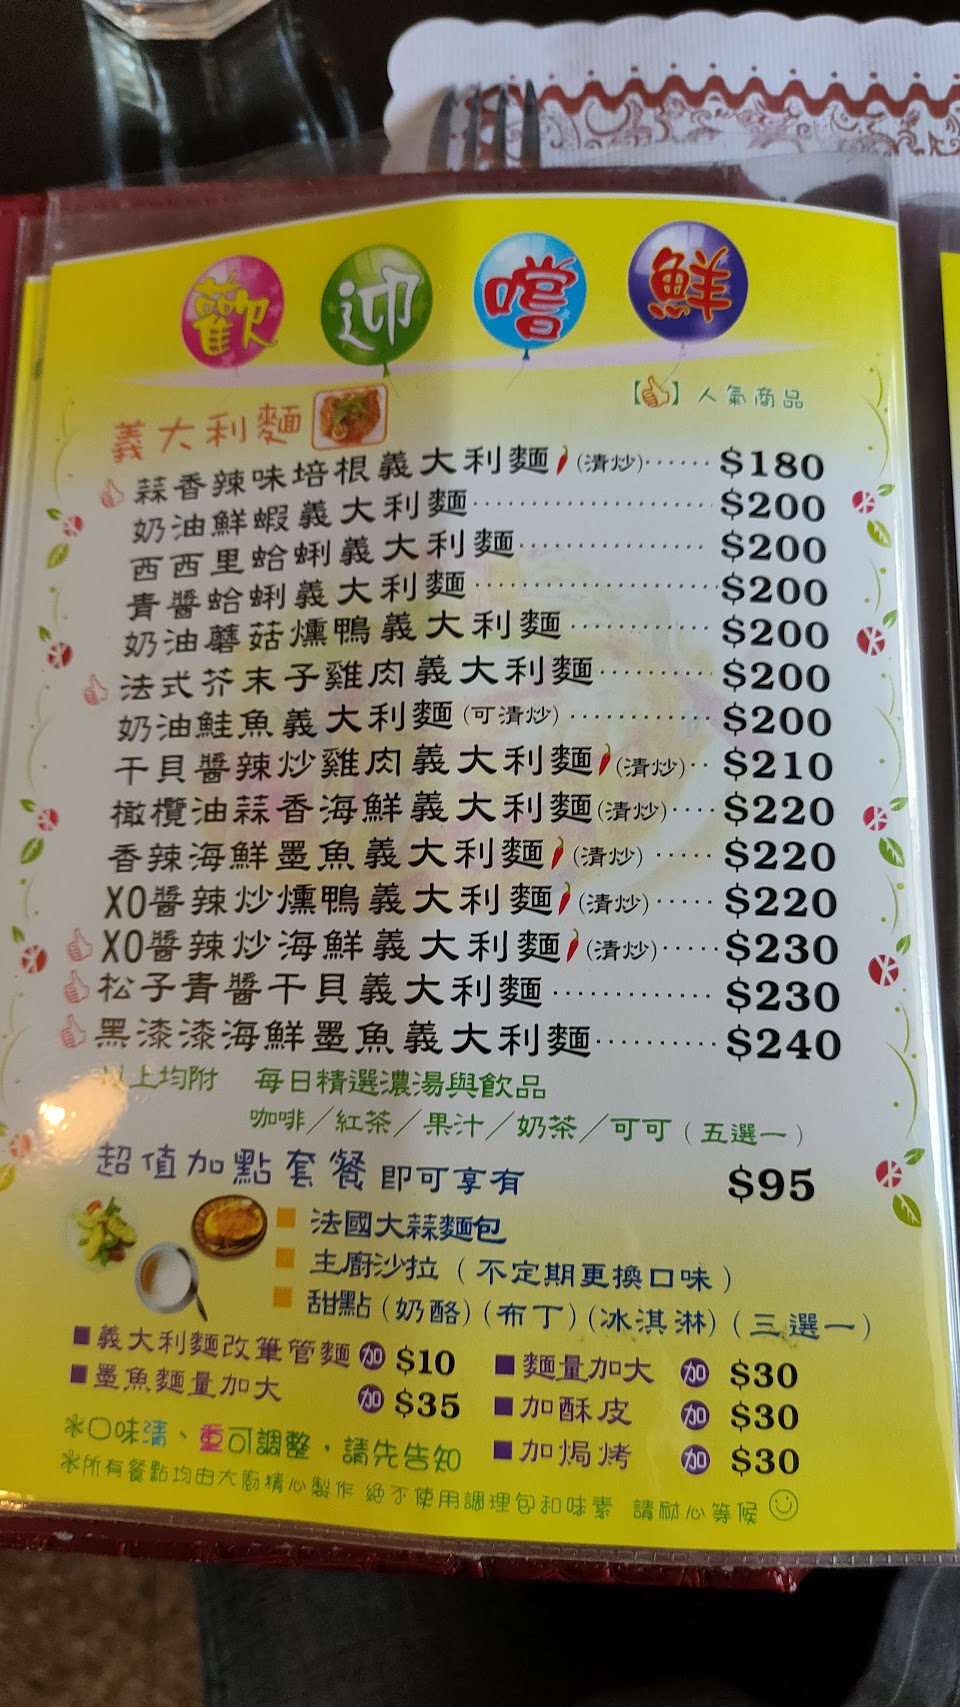 歡迎嚐鮮
【】人氣商品
義大利麵
蒜香辣味培根義大利麵(清炒)······$180
奶油鮮蝦義大利麵······$200
西西里蛤蜊義大利麵······$200
青醬蛤蜊義大利麵······$200
奶油蘑菇燻鴨義大利麵······$200
法式芥末子雞肉義大利麵······$200
奶油鮭魚義大利麵(可清炒)······$200
干貝醬辣炒雞肉義大利麵(清炒)··$210
橄欖油蒜香海鮮義大利麵(清炒)····$220
香辣海鮮墨魚義大利麵(清炒)·····$220
XO醬辣炒燻鴨義大利麵(清炒)·····$220
XO醬辣炒海鮮義大利麵(清炒)·····$230
松子青醬干貝義大利麵······$230
黑漆漆海鮮墨魚義大利麵······$240
以上均附 每日精選濃湯與飲品
咖啡／紅茶／果汁／奶茶／可可(五選一)
超值加點套餐即可享有 $95
法國大蒜麵包
主廚沙拉(不定期更換口味)
甜點(奶酪)(布丁)(冰淇淋)(三選一)
義大利麵改筆管麵 加 $10
麵量加大 加 $30
墨魚麵量加大 加 $35
加酥皮 加 $30
加焗烤 加 $30
＊口味清、重可調整，請先告知
＊所有餐點均由大廚精心製作 絕不使用調理包和味素 請耐心等候